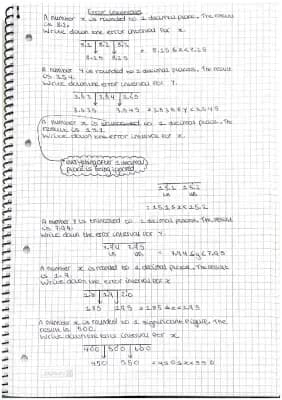 Error Intervals
A number x is rounded to 1 decimal place. The result
is 8.2.
Write down the error interval for x.
8.1 | 8.2 | 8.3
8.15 8.25 = 8.15 ≤ x < 8.25
A number Y is rounded to 2 decimal places. The result
is 3.64.
Write down the error interval for Y.
3.63 | 3.64 | 3.65
3.635 3.645 = 3.635 ≤ y < 3.645
A number x is truncated to 1 decimal place. The
result is 15.1.
Write down the error interval for x.
everything after 1 decimal
place is being ignored
15.1 15.2
= 15.1 ≤ x < 15.2
A number Y is truncated to 2 decimal places. The result
is 7.44.
Write down the error interval for Y.
7.44 7.45
7.44 ≤ y < 7.45
A number x is rounded to 1 decimal place. The result
is 1.9.
Write down the error interval for x
1.8 | 1.9 | 2.0
1.85 1.95 = 1.85 ≤ x < 1.95
A number x is rounded to 1 significant figure. The
result is 500.
Write down the error interval for x.
400 | 500 | 600
450 550 = 450 ≤ x < 550